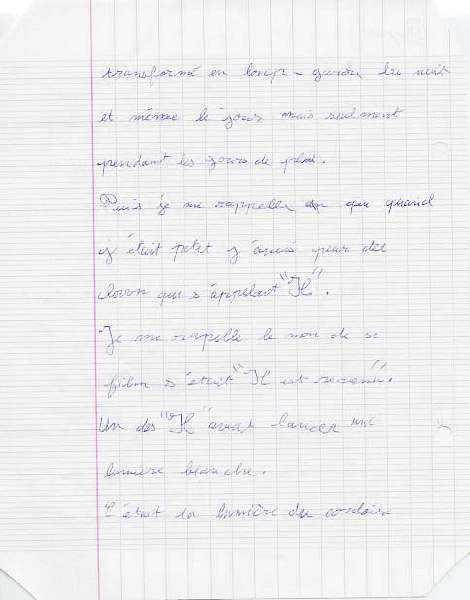 transformé en loup-garou la nuit
et même le jour mais seulment
pendant les jours de pluie.
Puis je me rappelle que quand
j'était petit j'avais peur des
clown qui s'appelait "Il".
Je me rappelle le non de se
film s'était "Il est revenu".
Un des "Il" avait lancer une
lumière blanche.
C'était la lumière du couloire